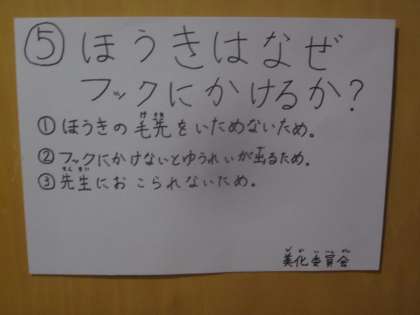 ⑤ほうきはなぜ
フックにかけるか?
①ほうきの毛先をいためないため。
②フックにかけないとゆうれいが出るため。
③先生におこられないため。
美化委員会